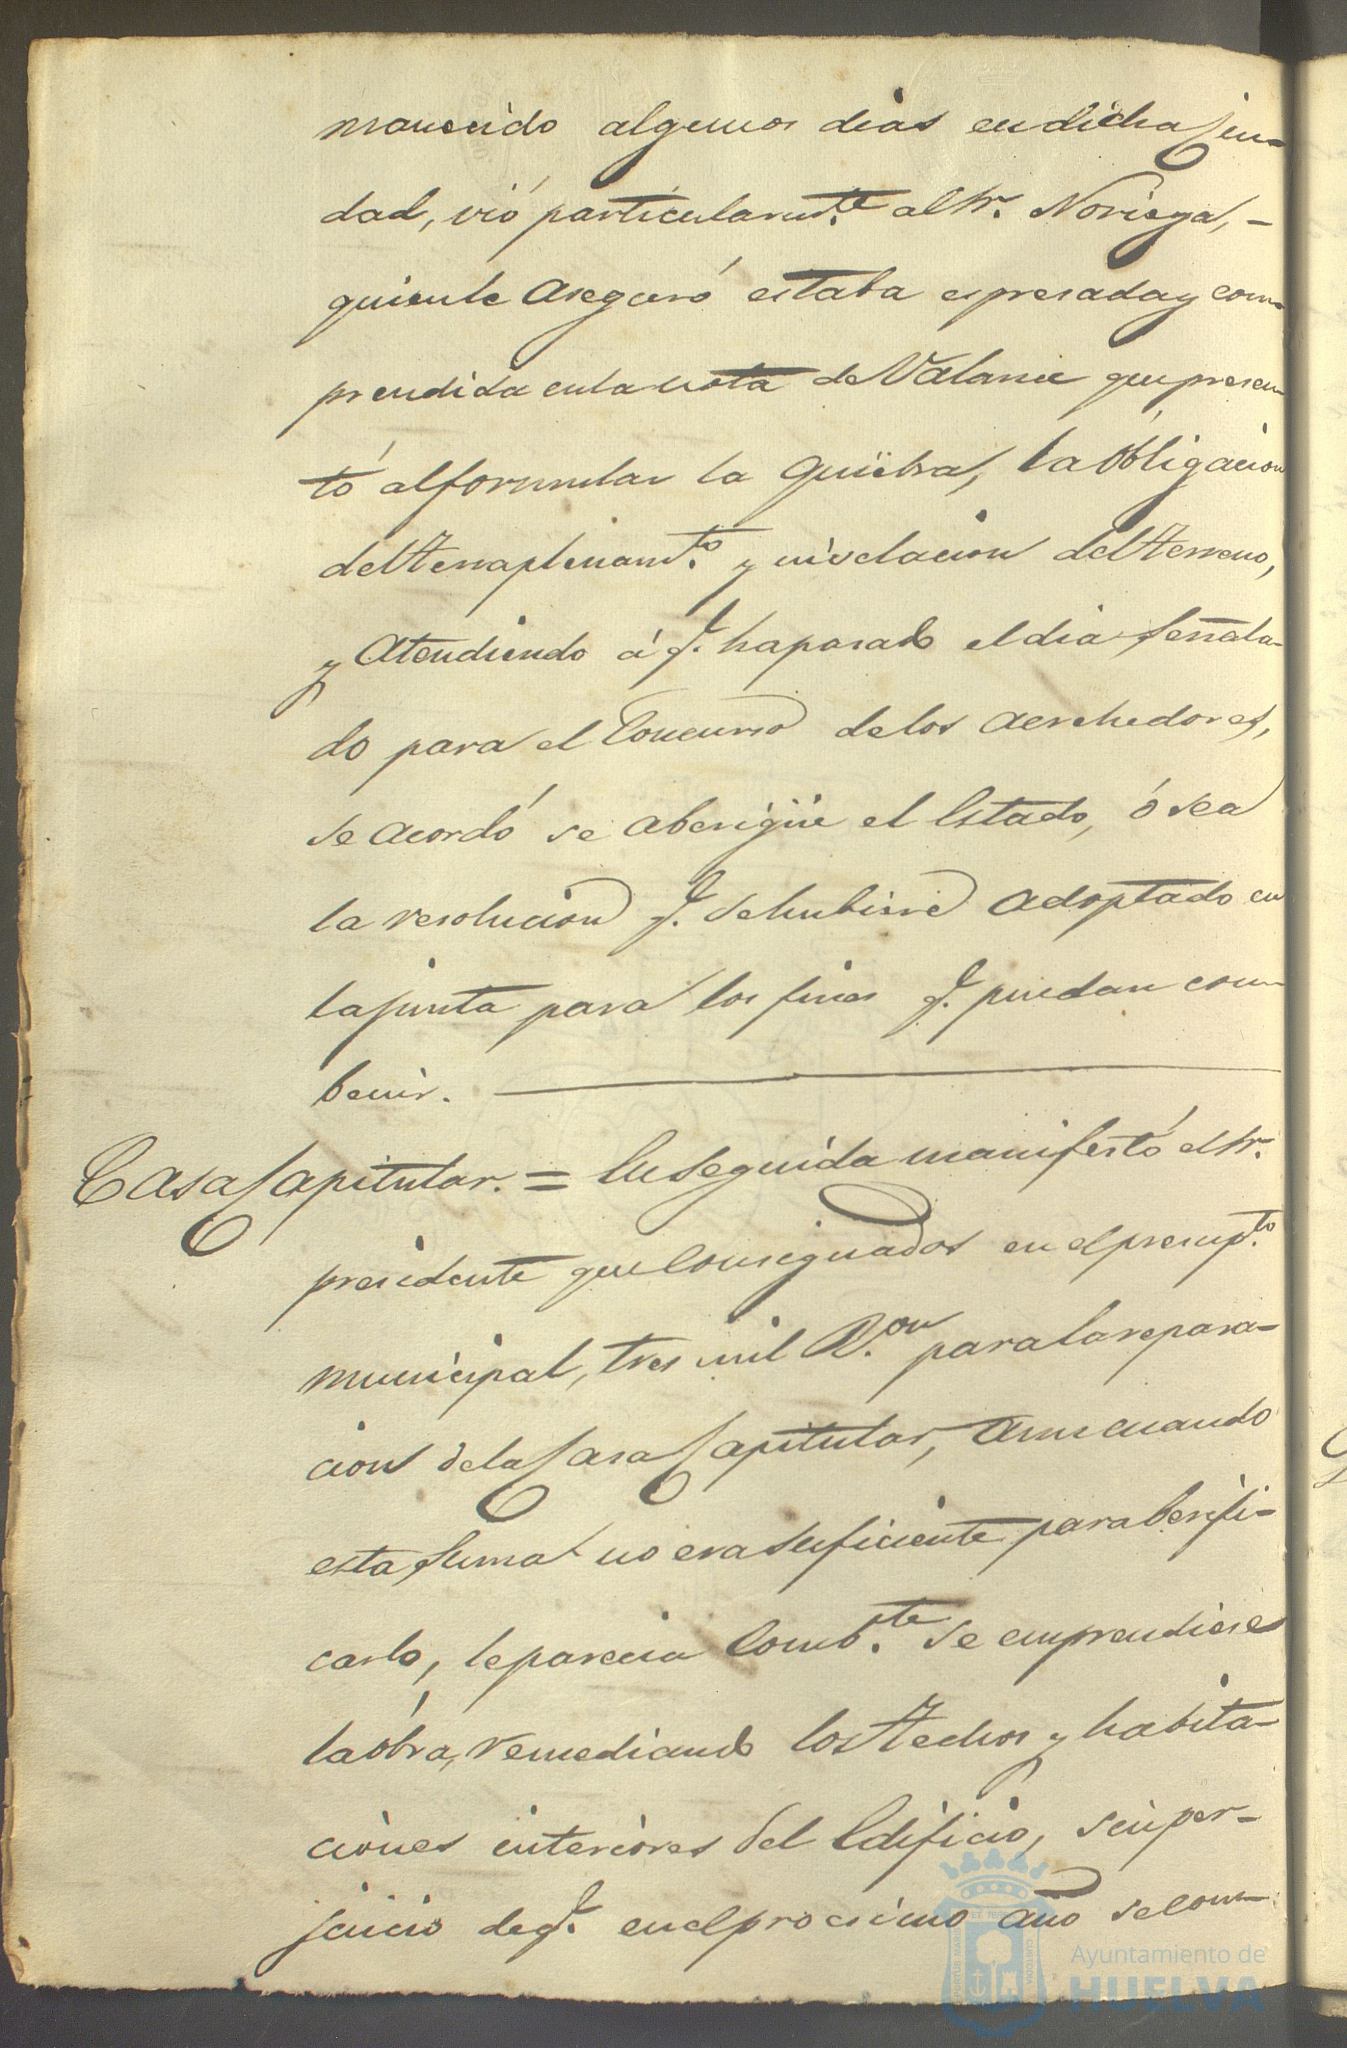 manecido algunos dias en dicha Ciu-
dad, vió particularmte. al Sr. Noriega, -
quien le aseguró estaba espresada y com-
prendida en la nota de Valance que presen-
tó al formular la Quiebra, la obligacion
del terraplenamto. y nivelacion del terreno,
y atendiendo á q. ha pasado el dia señala-
do para el Concurso de los acrehedores,
se acordó se aberigüe el Estado, ó sea
la resolucion q. se hubiere adoptado en
la junta para los fines q. puedan com-
benir.
Casa Capitular. = En seguida manifestó el Sr.
presidente que Consignados en el presupto.
municipal, tres mil R.on para la repara-
cion de la Casa Capitular, aun cuando
esta suma no era suficiente para berifi-
carlo, le parecia Combte. se emprendiese
la óbra, remediando los techos y habita-
ciones interiores del Edificio, sin per-
juicio de q. en el procsimo año se con-
Ayuntamiento de
HUELVA